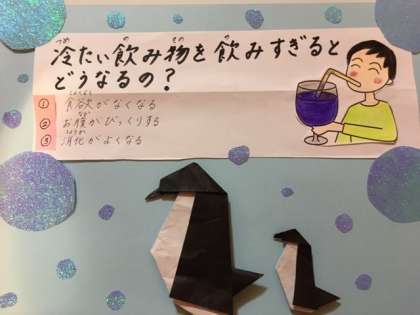 冷たい飲み物を飲みすぎると
どうなるの？
① 食欲がなくなる
② お腹がびっくりする
③ 消化がよくなる